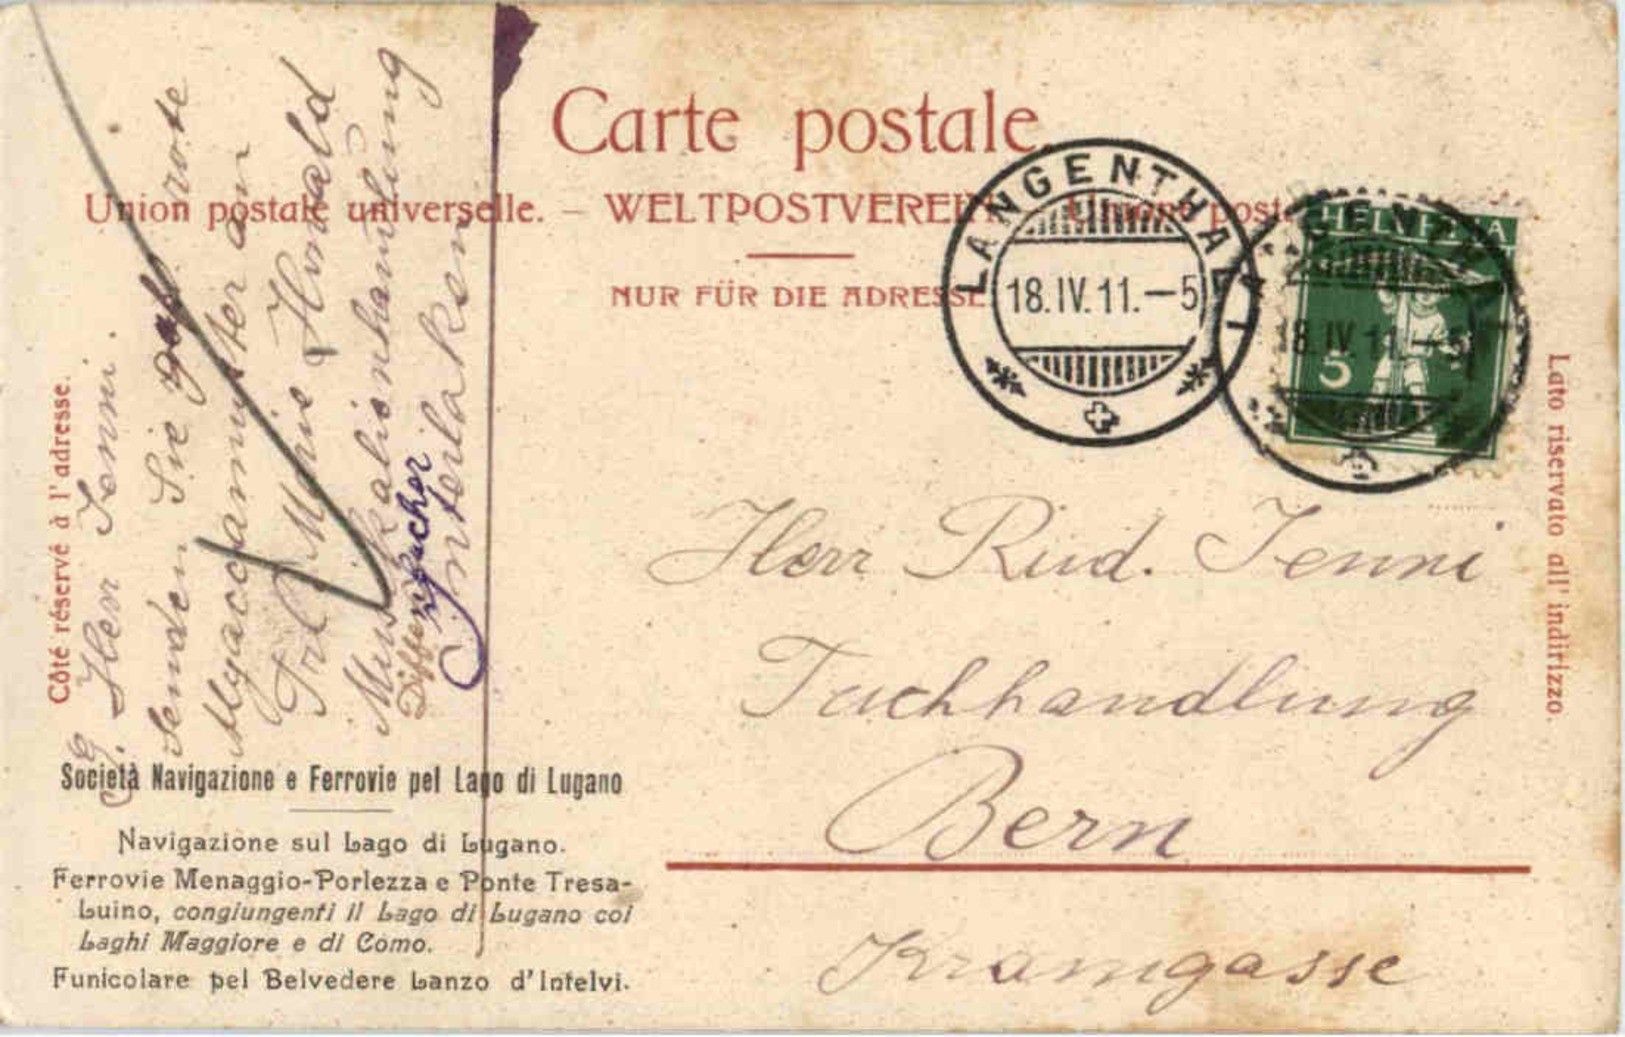 Carte postale.
Union postale universelle. — WELTPOSTVEREIN Unione post
NUR FÜR DIE ADRESSE
LANGENTHAL
18.IV.11.—5
LANGENTHAL
18.IV.11.—5
HELVETIA
5
Côté réservé à l'adresse.
Lato riservato all' indirizzo.
G. Herr Jenni.
Senden Sie rote
an
Frl. Marie
Musikalienhandlung
Interlaken
Herr Rud. Jenni
Tuchhandlung
Bern
Kramgasse
Società Navigazione e Ferrovie pel Lago di Lugano
Navigazione sul Lago di Lugano.
Ferrovie Menaggio-Porlezza e Ponte Tresa-
Luino, congiungenti il Lago di Lugano coi
Laghi Maggiore e di Como.
Funicolare pel Belvedere Lanzo d'Intelvi.